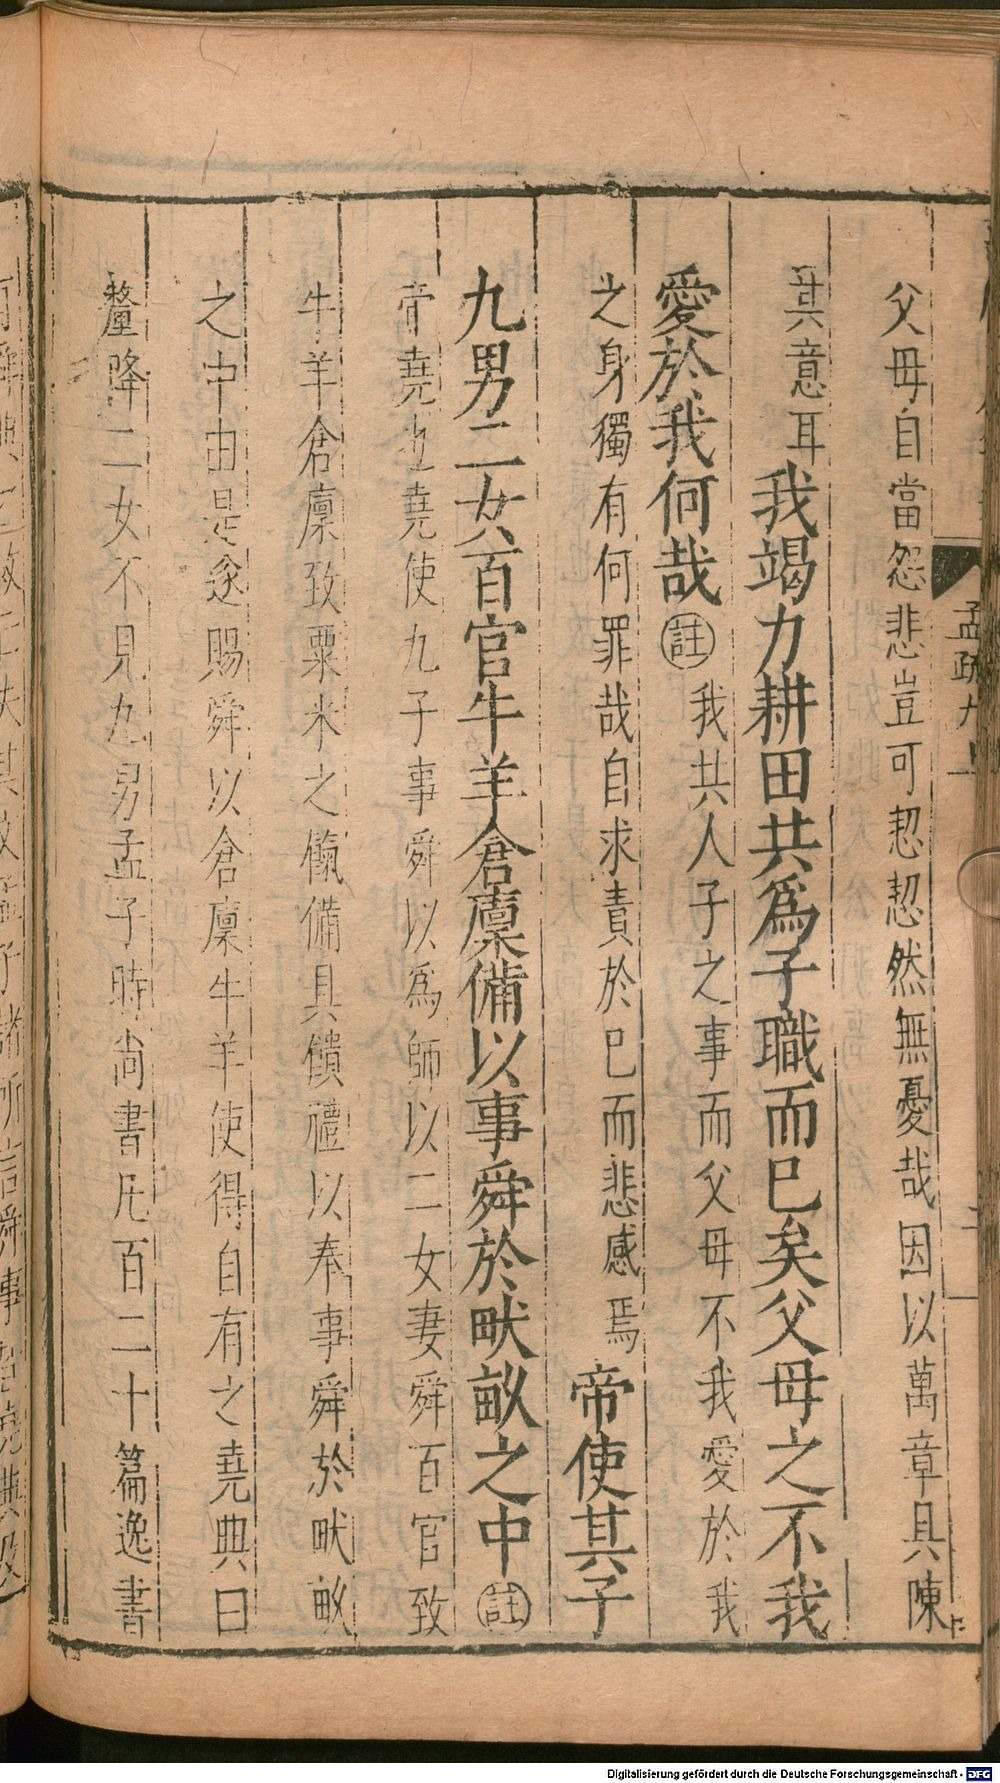 父母自當怨悲豈可恝恝然無憂哉因以萬章具陳
其意耳我竭力耕田共爲子職而已矣父母之不我
愛於我何哉註我共人子之事而父母不我愛於我
之身獨有何罪哉自求責於已而悲感焉帝使其子
九男二女百官牛羊倉廩備以事舜於畎畝之中註
帝堯也堯使九子事舜以爲師以二女妻舜百官致
牛羊倉廩致粟米之餼備具饋禮以奉事舜於畎畝
之中由是遂賜舜以倉廩牛羊使得自有之堯典曰
釐降二女不見九男孟子時尚書凡百二十篇逸書
孟疏九上
二
Digitalisierung gefördert durch die Deutsche Forschungsgemeinschaft - DFG